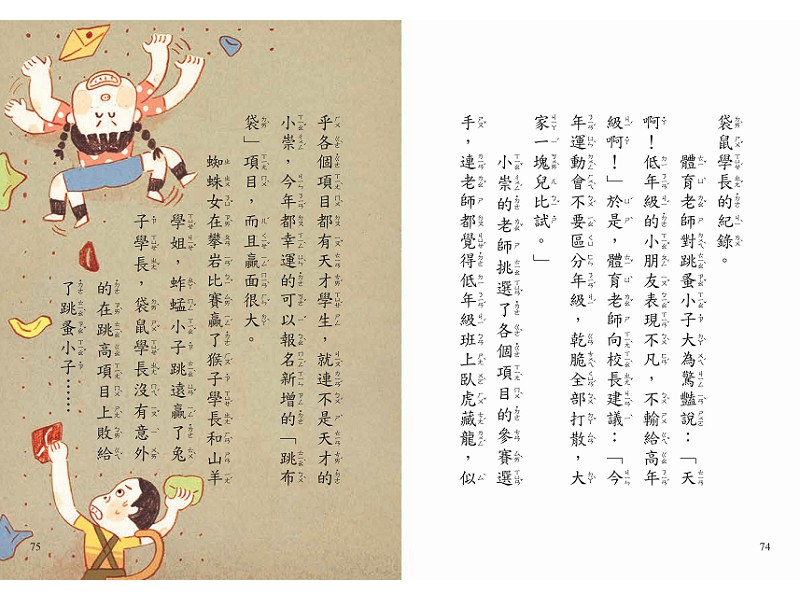 袋鼠學長的紀錄。
體育老師對跳蚤小子大為驚豔說：「天
啊！低年級的小朋友表現不凡，不輸給高年
級啊！」於是，體育老師向校長建議：「今
年運動會不要區分年級，乾脆全部打散，大
家一塊兒比試。」
小崇的老師挑選了各個項目的參賽選
手，連老師都覺得低年級班上臥虎藏龍，似
74
乎各個項目都有天才學生，就連不是天才的
小崇，今年都幸運的可以報名新增的「跳布
袋」項目，而且贏面很大。
蜘蛛女在攀岩比賽贏了猴子學長和山羊
學姐，蚱蜢小子跳遠贏了兔
子學長，袋鼠學長沒有意外
的在跳高項目上敗給
了跳蚤小子……
75